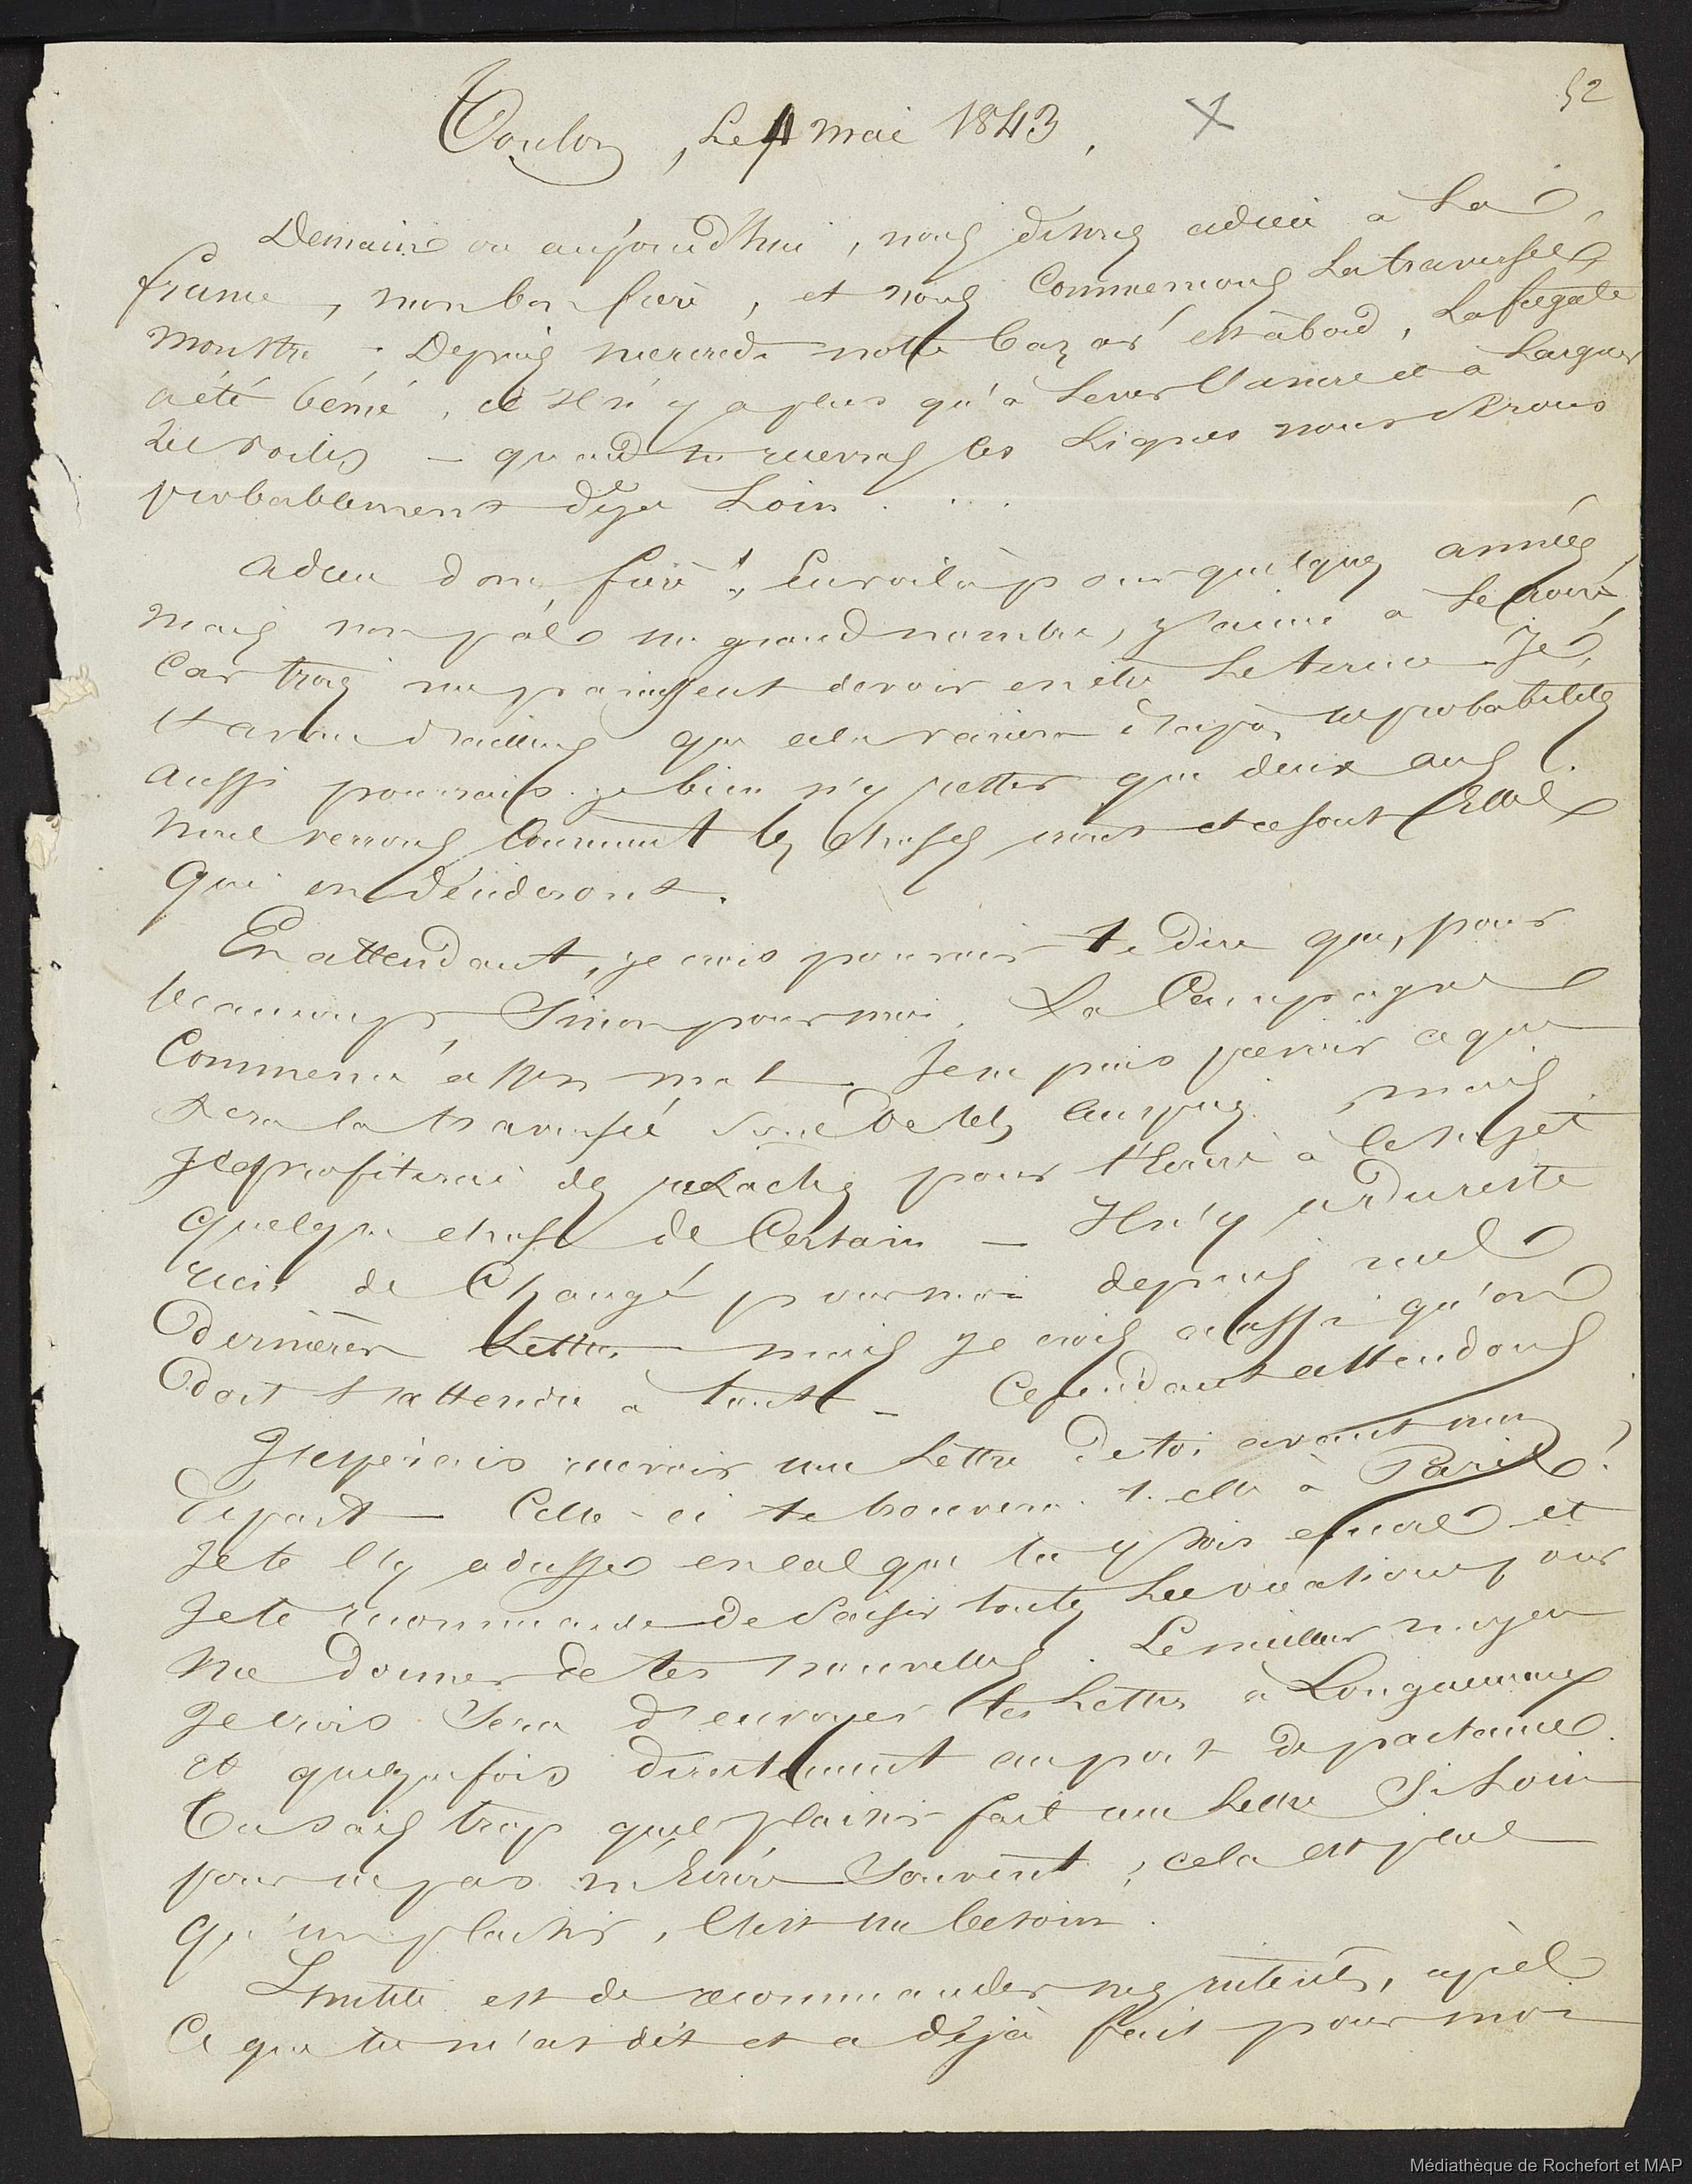 52
Toulon, Le 4 mai 1843,
Demain ou aujourd'hui, nous disons adieu à La
france, mon bon frère, et nous Commençons La traversée
monstre. Depuis mercredi notre bazar est à bord, La frégate
a été bénie, et Il n'y a plus qu'à Lever l'ancre et à Larguer
Les voiles — quand tu recevras ces Lignes nous Serons
probablement déjà Loin . . .
adieu donc frère! En voilà pour quelques années,
mais non pas un grand nombre, j'aime à Le croire,
Car trois me paraissent devoir en être Le terme. Je
d'ailleurs que cela
aussi pourrais-je bien n'y rester que deux ans.
nous verrons Comment les choses iront et ce sont Elles
qui en décideront.
En attendant, je crois pouvoir te Dire que, pour
beaucoup, Sinon pour moi, La Campagne
Commence assez mal. Je ne puis prévoir ce que
Sera la traversée Sous de tels auspices mais
Je profiterai des relaches pour t'Ecrire à ce Sujet
quelque chose de Certain — Il n'y a Du reste
rien de Changé pour moi depuis mes
Dernières Lettres mais je crois aussi qu'on
Doit s'attendre à tout — Cependant attendons
J'espérais recevoir une Lettre De toi avant mon
départ — Celle-ci te trouvera-t-elle à Paris?
Je te l'y adresse en cas que tu y sois encore et
Je te recommande De Saisir toutes Les occasions pour
me Donner de tes nouvelles. Le meilleur moyen
Je crois Sera d'envoyer tes Lettres à
et quelquefois directement au port de partance.
Tu sais trop quel plaisir fait une Lettre Si Loin
pour ne pas m'Ecrire Souvent, cela est plus
qu'un plaisir, C'est un besoin.
Inutile est de recommander mes intérêts, après
Ce que tu m'as dit et a déjà fait pour moi
Médiathèque de Rochefort et MAP